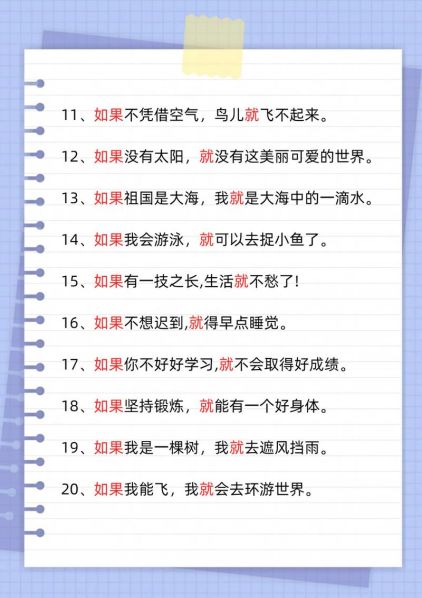 11、如果不凭借空气，鸟儿就飞不起来。
12、如果没有太阳，就没有这美丽可爱的世界。
13、如果祖国是大海，我就是大海中的一滴水。
14、如果我会游泳，就可以去捉小鱼了。
15、如果有一技之长,生活就不愁了!
16、如果不想迟到,就得早点睡觉。
17、如果你不好好学习,就不会取得好成绩。
18、如果坚持锻炼，就能有一个好身体。
19、如果我是一棵树，我就去遮风挡雨。
20、如果我能飞，我就会去环游世界。